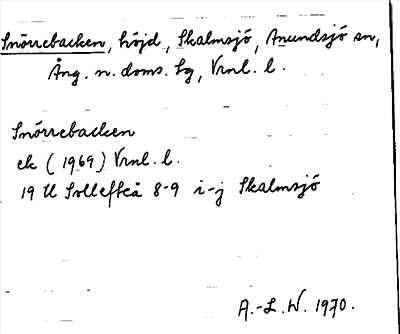 Snörrebacken, höjd, Skalmsjö, Anundsjö sn,
Ång. n. doms. sg, Vrnl. l.
Snörrebacken
ek (1969) Vrnl. l.
19 H Sollefteå 8-9 i-j Skalmsjö
A.-L.W. 1970.